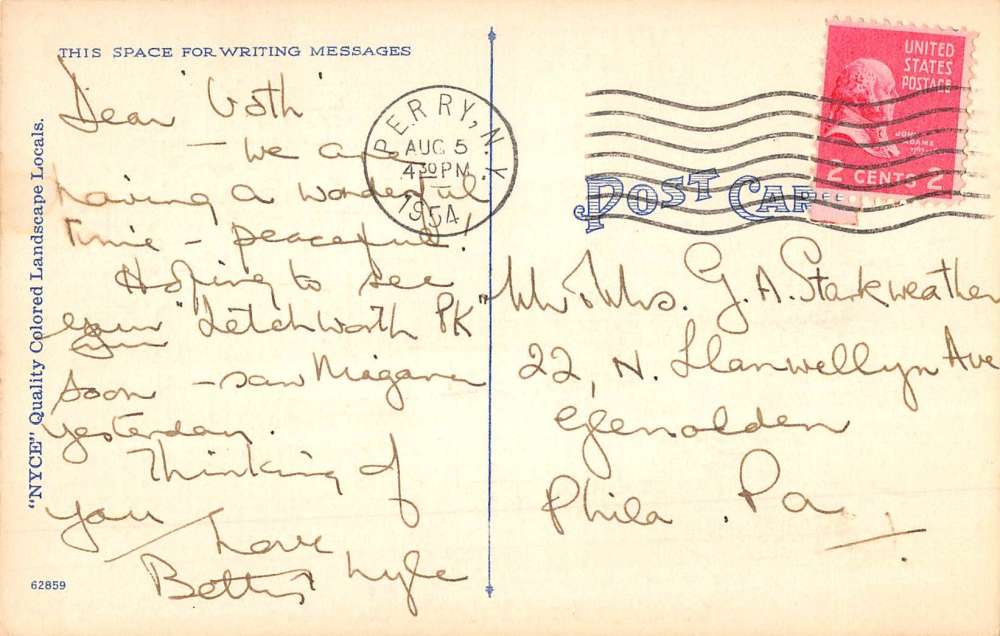 THIS SPACE FOR WRITING MESSAGES
Dear
- We are
having a wonderful
time - peaceful.
Hoping to see
your "Letchworth PK"
soon - saw Niagara
yesterday.
Thinking of
you
Love
"NYCE" Quality Colored Landscape Locals.
62859
PERRY, N.Y.
AUG 5
4 30 PM
1954
UNITED
STATES
POSTAGE
JOHN
ADAMS
2 CENTS 2
POST CARD
Mr & Mrs. G. A. Starkweather
22, N. Llanwellyn Ave
Glenolden
Phila. Pa